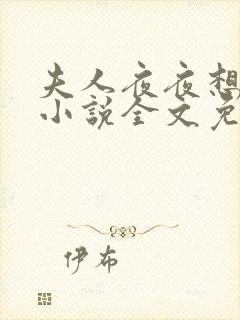 夫人夜夜想
小说全文免
伊布